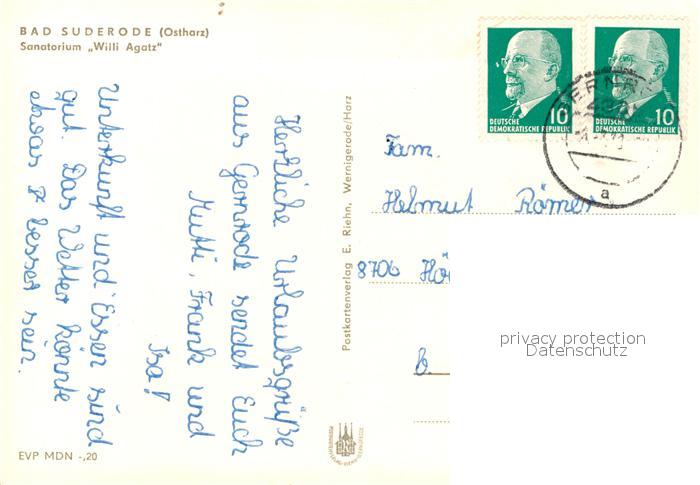 BAD SUDERODE (Ostharz)
Sanatorium „Willi Agatz"
Herzliche Urlaubsgrüße
aus Gernrode sendet Euch
Mutti, Frank und
Isa!
Unterkunft und Essen sind
gut. Das Wetter könnte
etwas besser sein.
EVP MDN -,20
Postkartenverlag E. Riehn, Wernigerode/Harz
DEUTSCHE
DEMOKRATISCHE REPUBLIK
10
DEUTSCHE
DEMOKRATISCHE REPUBLIK
10
a
Fam.
Helmut Römer
8706
b.
privacy protection
Datenschutz